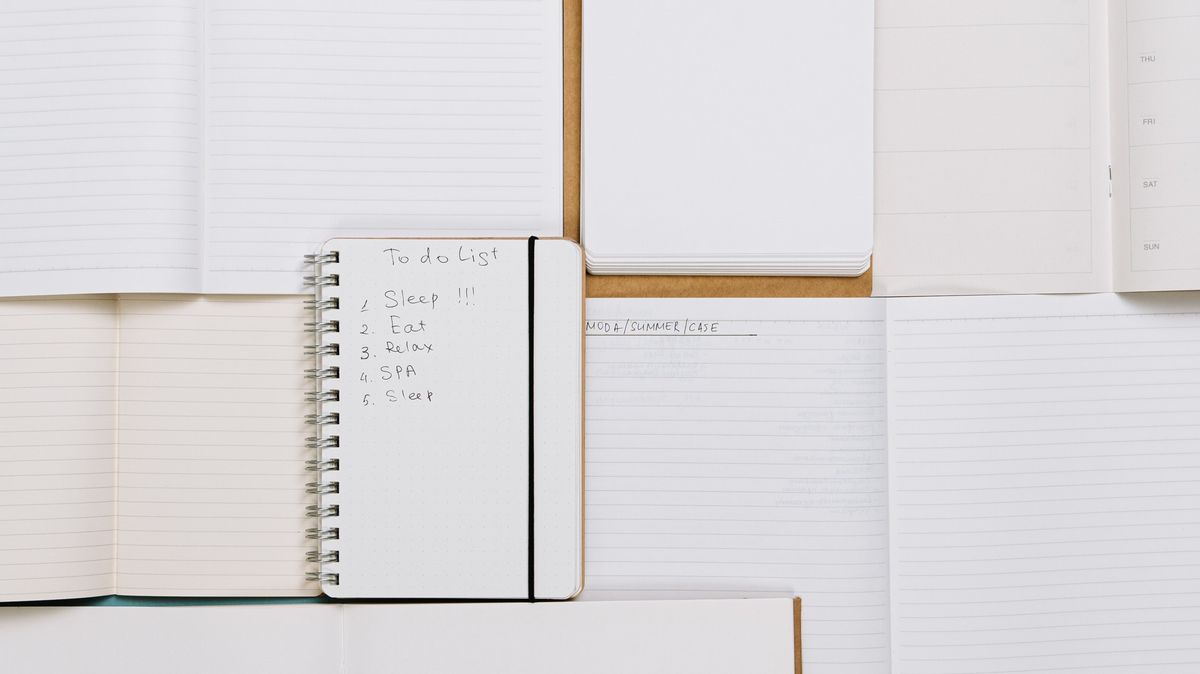 To do List
1 Sleep !!!
2. Eat
3. Relax
4. SPA
5. Sleep
MODA/SUMMER/CASE
THU
FRI
SAT
SUN